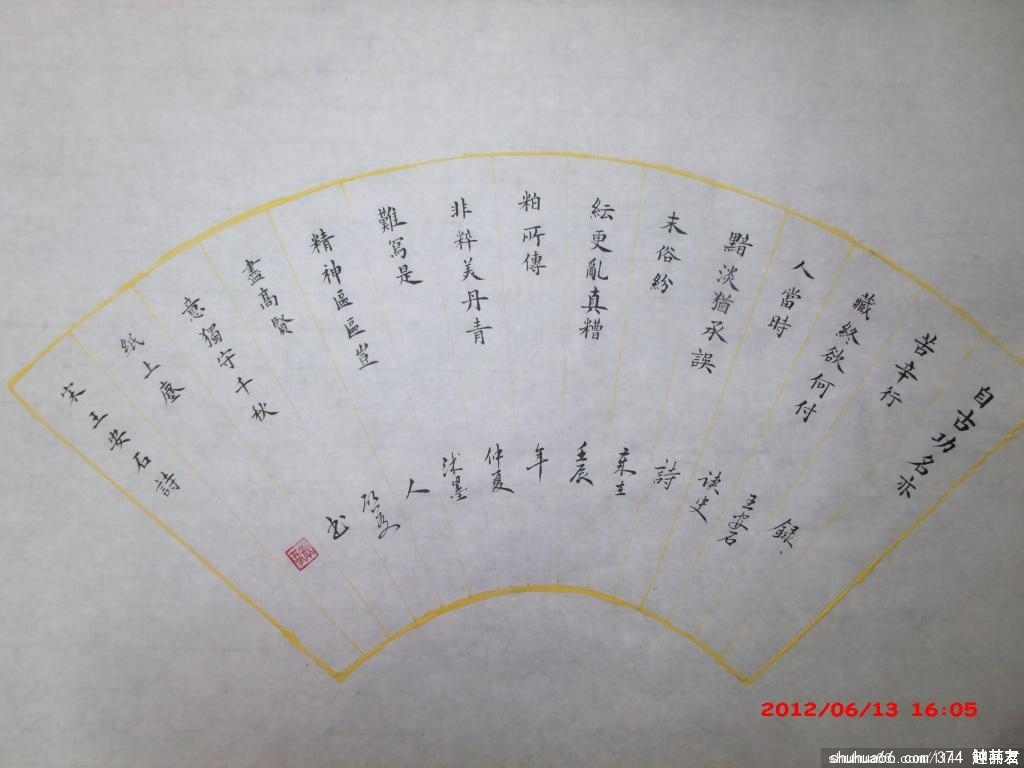 自古功名亦
苦辛行
藏終欲何付
人當時
黯淡猶承誤
末俗紛
紜更亂真糟
粕所傳
非粹美丹青
難寫是
精神區區豈
盡高賢
意獨守千秋
紙上塵
宋王安石詩
錄
王安石
读史
詩
壬辰
年
仲夏
墨
人
书
2012/06/13 16:05